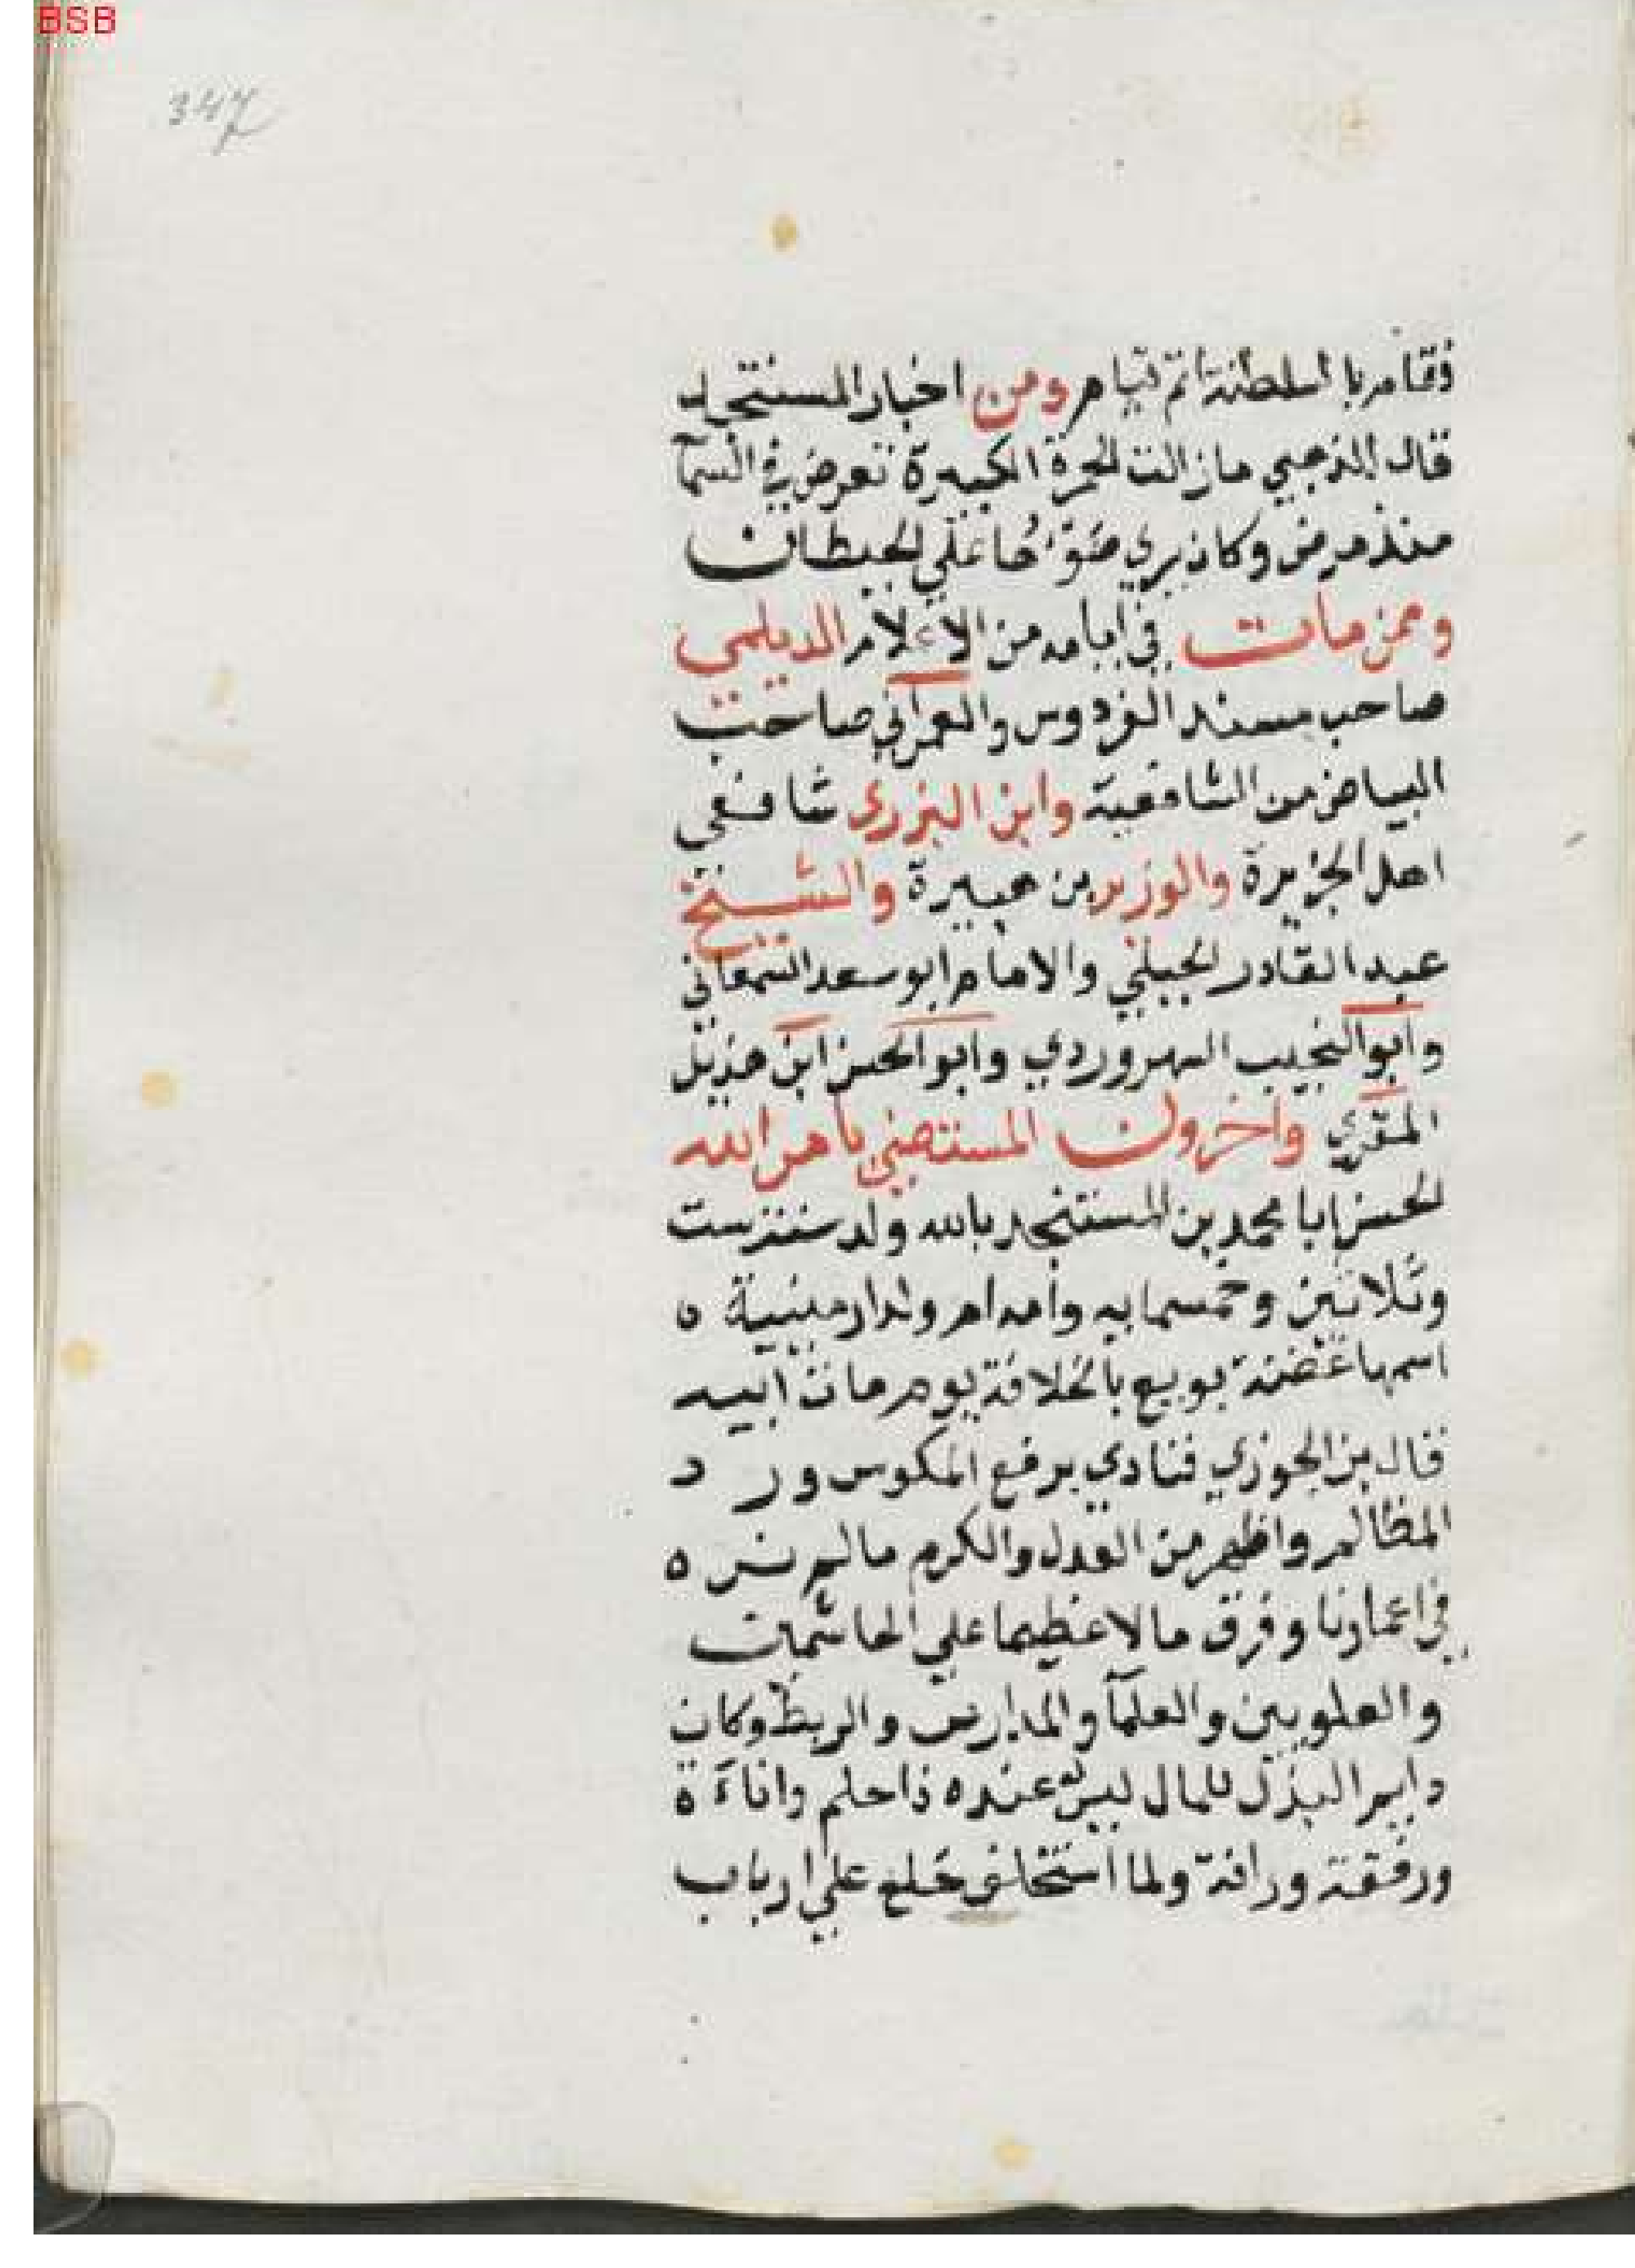 BSB
347
فقام بالسلطنة اتم قيام ومن اخبار المستنجد
قال الذهبي مازالت الحمرة الكبيرة تعرض في السما
منذ مرض وكان يري ضوءها علي الحيطان
وممن مات في ايامه من الاعلام الديلمي
صاحب مسند الفردوس والعمراني صاحب
البياض من الشافعية وابن البزري شافعي
اهل الجزيرة والوزير بن هبيرة والشيخ
عبد القادر الجيلي والامام ابو سعد السمعاني
وابو النجيب السهروردي وابو الحسن ابن هذيل
المقري واخرون المستضي بامر الله
الحسن ابا محمد بن المستنجد بالله ولد سنة ست
وثلاثين وخمسمايه وامه ام ولد ارمينية ه
اسمها غضنة بويع بالخلافة يوم مات ابيه
قال بن الجوزي فنادي برفع المكوس ورد
المظالم واظهر من العدل والكرم مالم نر ه
في اعمارنا وفرق مالا عظيما علي الهاشمين
والعلويين والعلمآ والمدارس والربط وكان
دايم البذل للمال ليس له عنده ذا حلم واناآة
ورفقة ورافة ولما استخلف خلع علي ارباب